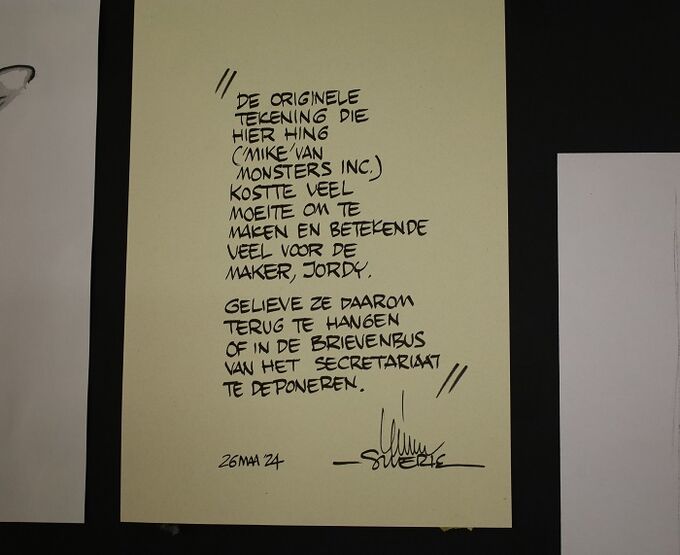 " DE ORIGINELE
TEKENING DIE
HIER HING
('MIKE' VAN
MONSTERS INC.)
KOSTTE VEEL
MOEITE OM TE
MAKEN EN BETEKENDE
VEEL VOOR DE
MAKER, JORDY.
GELIEVE ZE DAAROM
TERUG TE HANGEN
OF IN DE BRIEVENBUS
VAN HET SECRETARIAAT
TE DEPONEREN. "
26 MAA '24